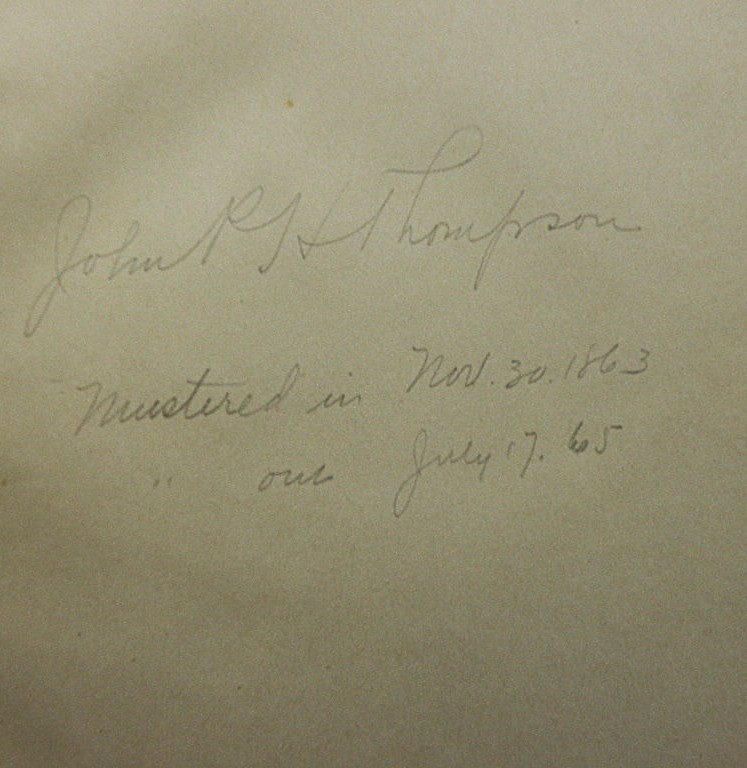 John P H Thompson
Mustered in Nov. 30. 1863
" out July 17. 65